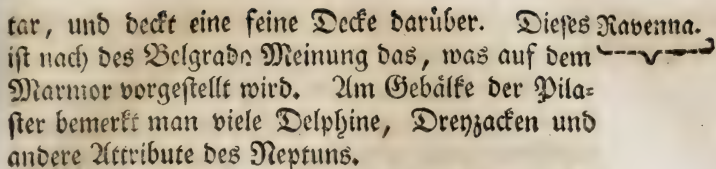 tar, und deckt eine feine Decke darüber. Dieses Ravenna.
ist nach des Belgrado Meinung das, was auf dem
Marmor vorgestellt wird. Am Gebälke der Pila-
ster bemerkt man viele Delphine, Dreyzacken und
andere Attribute des Neptuns.